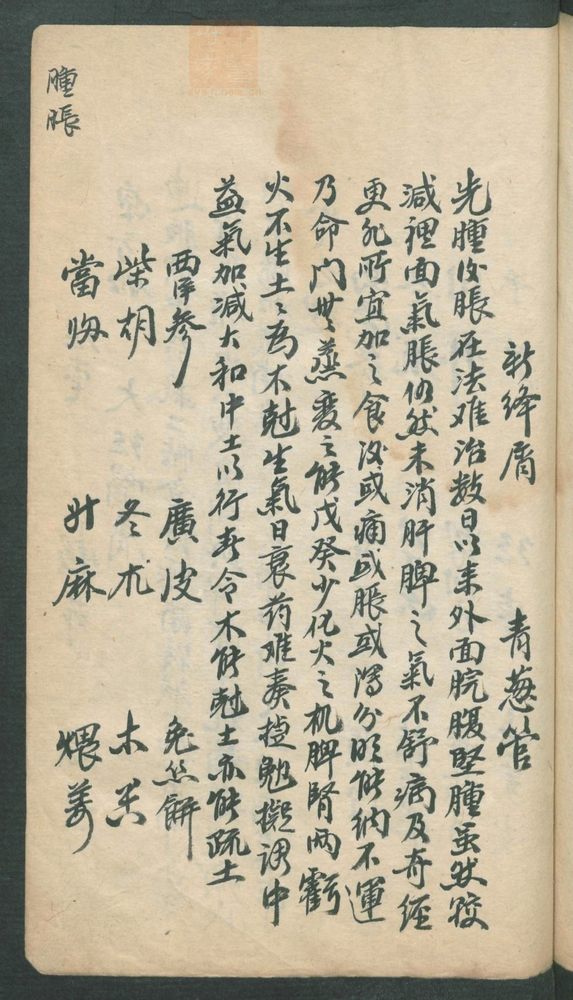 新绛屑　青葱管
先腫後脹在法难治数日以来外面脘腹坚腫虽然較
减裡面氣脹仍然未消肝脾之氣不舒病及奇經
更非所宜加之食後或痛或脹或瀉分明能納不運
乃命門無蒸变之能戊癸少化火之机脾腎両虧
火不生土土為木尅生氣日衰药难奏捷勉擬調中
益氣加减大和中土以行春令木能尅土亦能疏土
西洋參　廣皮　兔丝餅
柴胡　冬朮　木香
當归　升麻　煨姜
腫脹